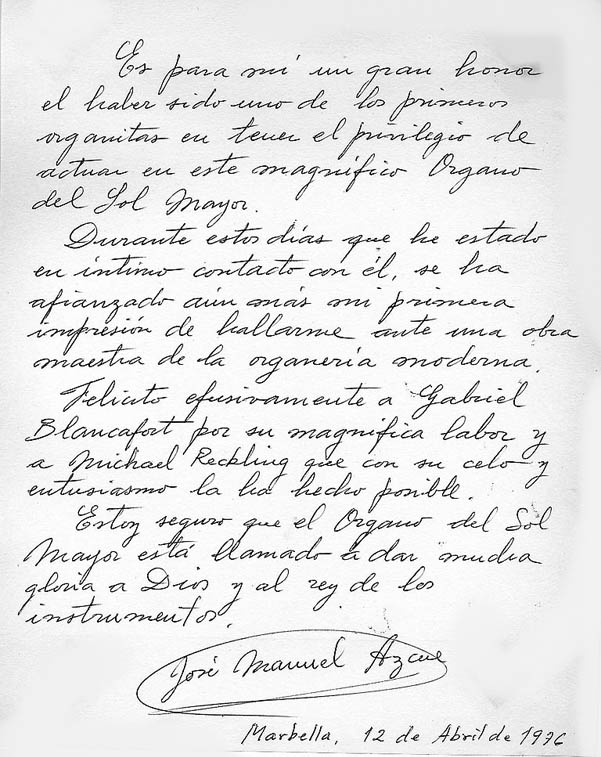 Es para mí un gran honor
el haber sido uno de los primeros
organitas en tener el privilegio de
actuar en este magnífico Organo
del Sol Mayor.
Durante estos días que he estado
en íntimo contacto con él, se ha
afianzado aún más mi primera
impresión de hallarme ante una obra
maestra de la organería moderna.
Felicito efusivamente a Gabriel
Blancafort por su magnífica labor y
a Michael Reckling que con su celo y
entusiasmo la ha hecho posible.
Estoy seguro que el Organo del Sol
Mayor está llamado a dar mucha
gloria a Dios y al rey de los
instrumentos.
José Manuel Azcue
Marbella, 12 de Abril de 1976